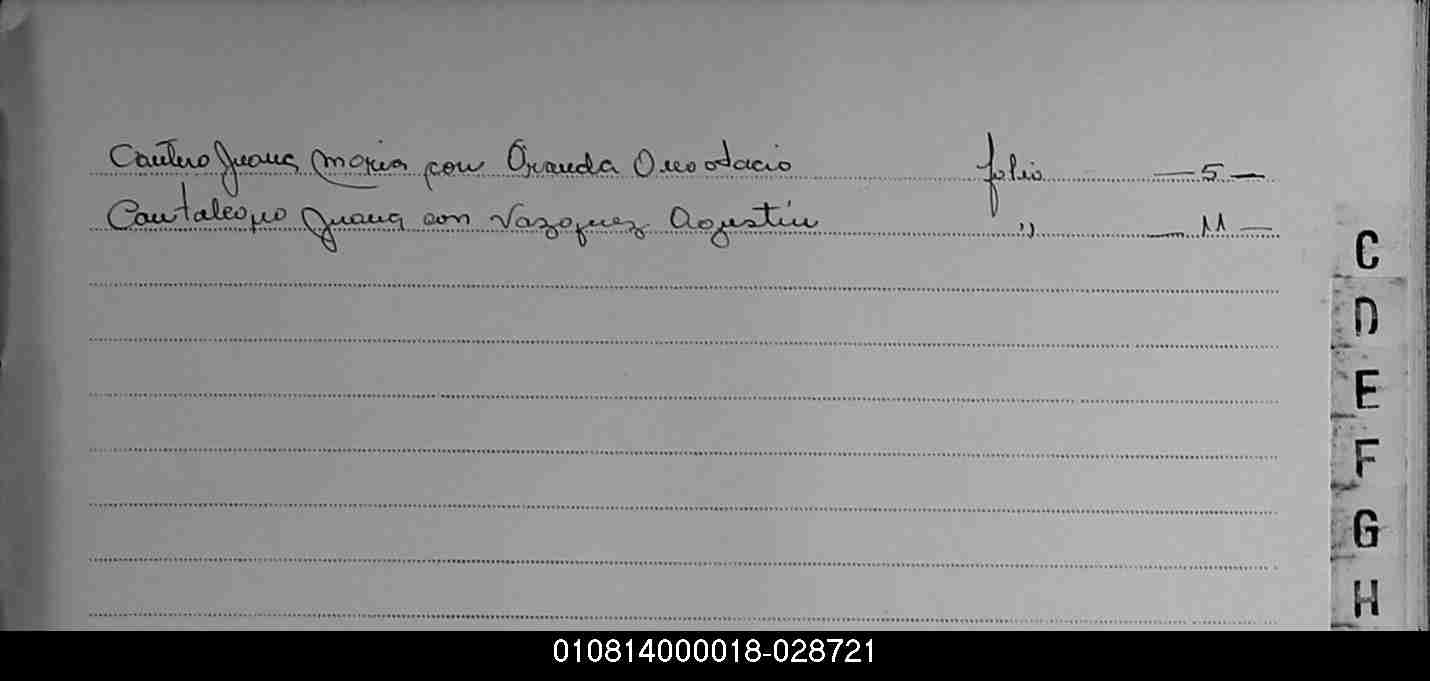 Cantero Juana Maria con Granda folio — 5 —
Cantalcopio Juana con Vazquez Agustin " — 11 —
C
D
E
F
G
H
010814000018-028721